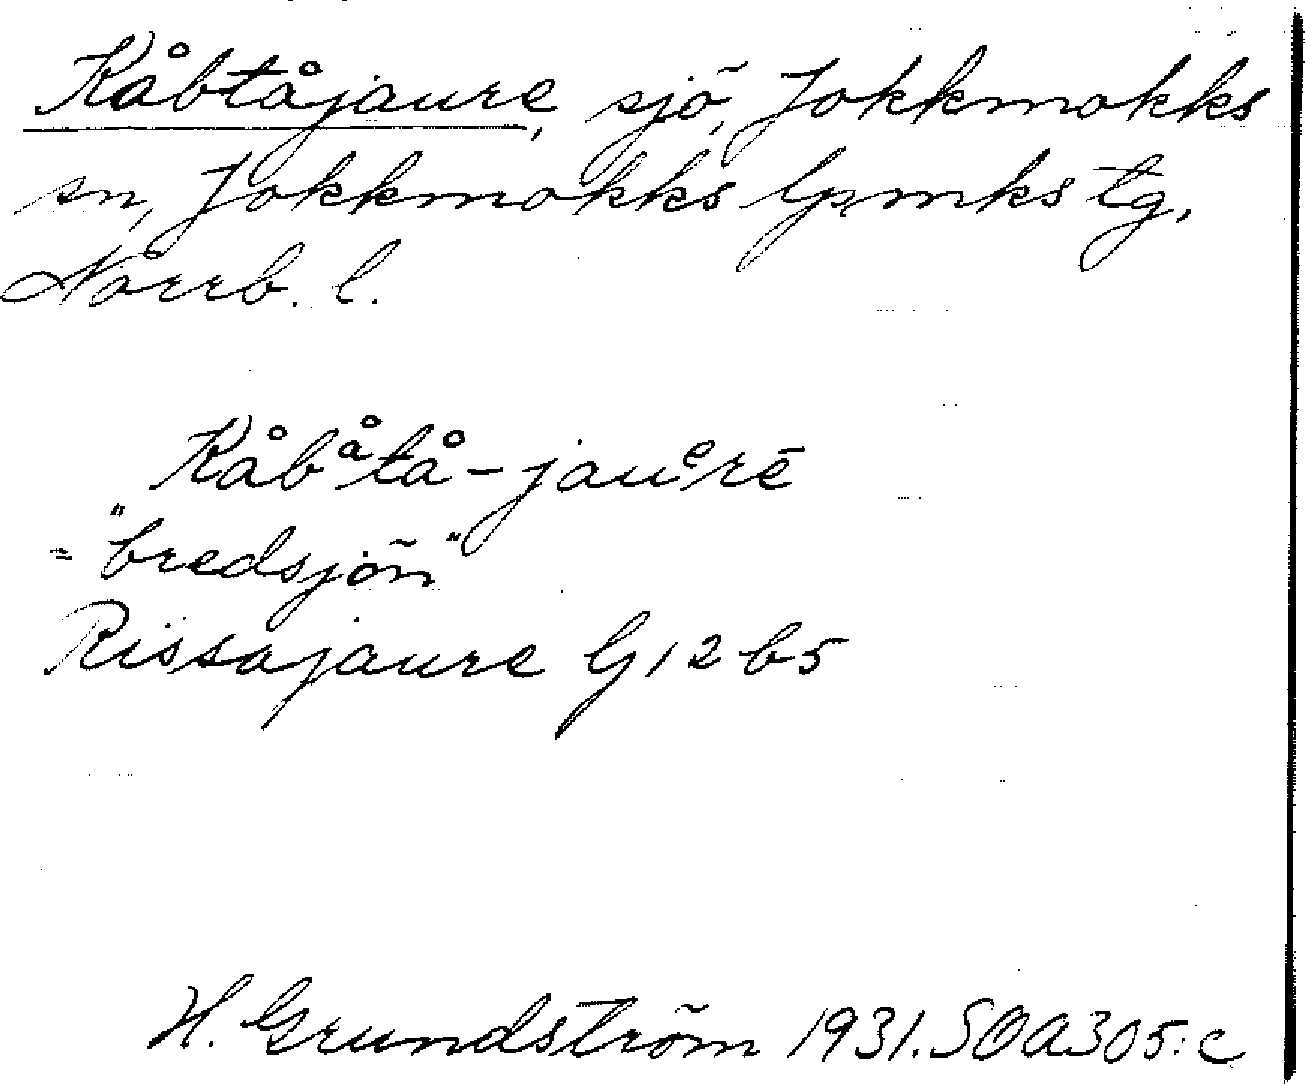 Kåbtåjaure, sjö, Jokkmokks
sn, Jokkmokks lpmks tg,
Norrb. l.
Kåbåtå-jaueʳrē
= "bredsjön"
Rissajaure G 12 b5
H. Grundström 1931. SOA305:c